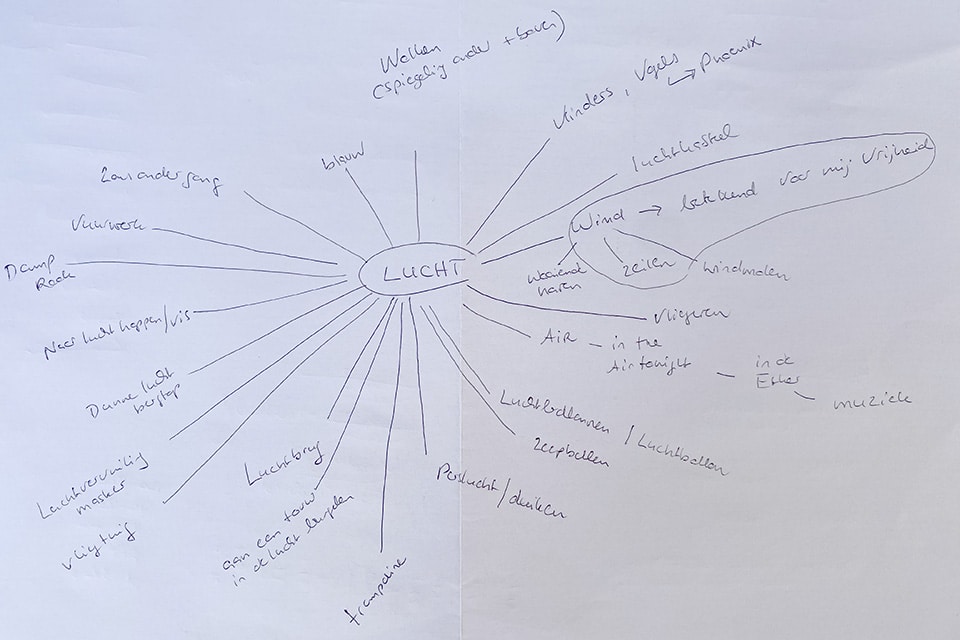 Wolken
(spiegeling onder + boven)
Vlinders, Vogels
→ Phoenix
blauw
luchtkasteel
Zonsondergang
Wind → betekend voor mij Vrijheid
Vuurwerk
Damp
Rook
LUCHT
waaiend
haren
zeilen
windmolen
Naar lucht happen/vis
vliegeren
AIR – in the
Air tonight
in de
Ether
muziek
Dunne lucht
bergtop
Luchtballonnen / Luchtbellen
Zeepbellen
Luchtvervuiling
masker
Luchtbrug
Perslucht/duiken
vliegtuig
aan een touw
in de lucht bengelen
trampoline